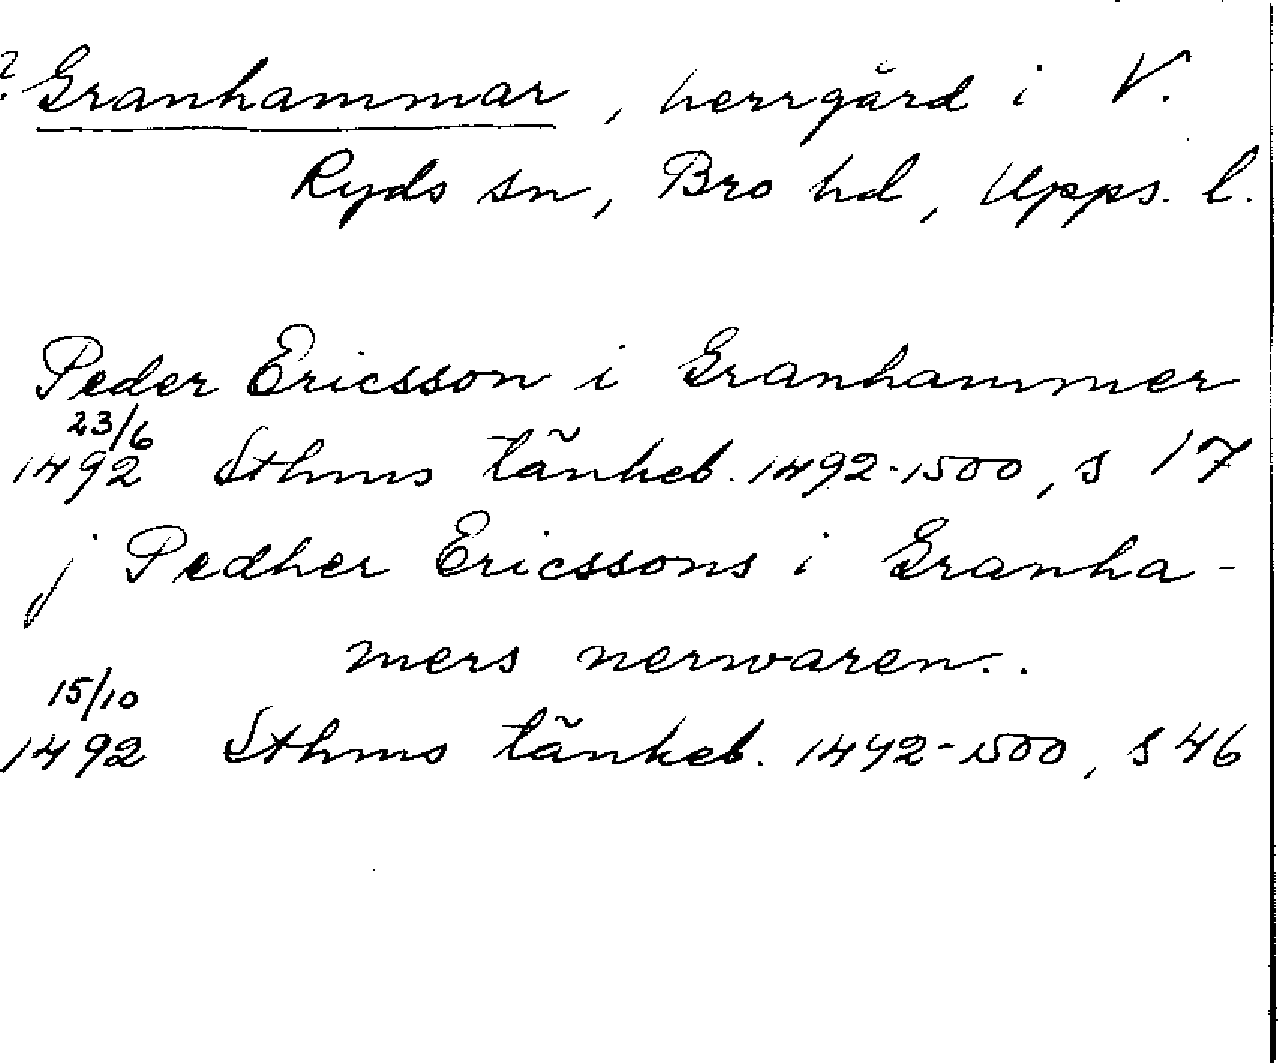 ? Granhammar, herrgård i V.
Ryds sn, Bro hd, Upps. l.
Peder Ericsson i Granhammer
23/6
1492 Sthms tänkeb. 1492-1500, s 17
j Pedher Ericssons i Granha-
mers nerwaren..
15/10
1492 Sthms tänkeb. 1492-1500, s 46